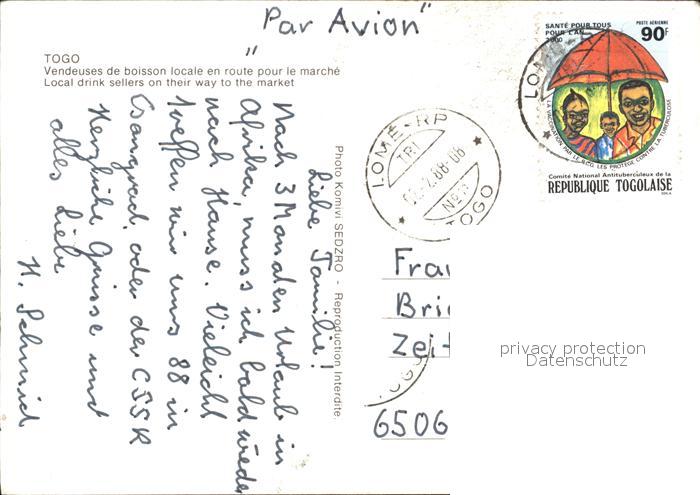 "Par Avion"
TOGO
Vendeuses de boisson locale en route pour le marché
Local drink sellers on their way to the market
Liebe Familie!
Nach 3 Monaten Urlaub in
Afrika, muss ich bald wieder
nach Hause. Vieleicht
treffen wir uns 88 in
oder der CSSR
Herzliche Grüsse und
alles Liebe
H. Schmid
Photo Komivi SEDZRO - Reproduction Interdite.
LOMÉ-RP
TRI
02-2.88-08
TOGO
SANTÉ POUR TOUS
POUR L'AN
2000
POSTE AÉRIENNE
90F
LA VACCINATION PAR LE B.CG. LES PROTÈGE CONTRE LA TUBERCULOSE
Comité National Antituberculeux de la
RÉPUBLIQUE TOGOLAISE
LOM
Frau
Bri
Zei
6506
TOGO
privacy protection
Datenschutz